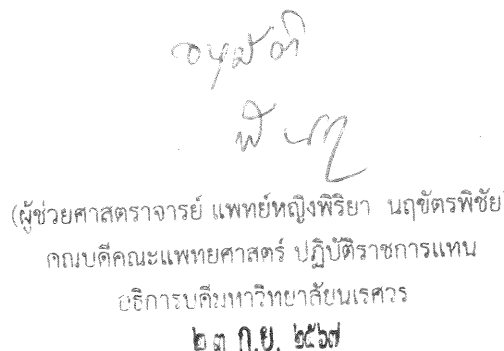 อนุมัติ
(ผู้ช่วยศาสตราจารย์ แพทย์หญิงพิริยา นฤขัตรพิชัย)
คณบดีคณะแพทยศาสตร์ ปฏิบัติราชการแทน
อธิการบดีมหาวิทยาลัยนเรศวร
๒๓ ก.ย. ๒๕๖๗